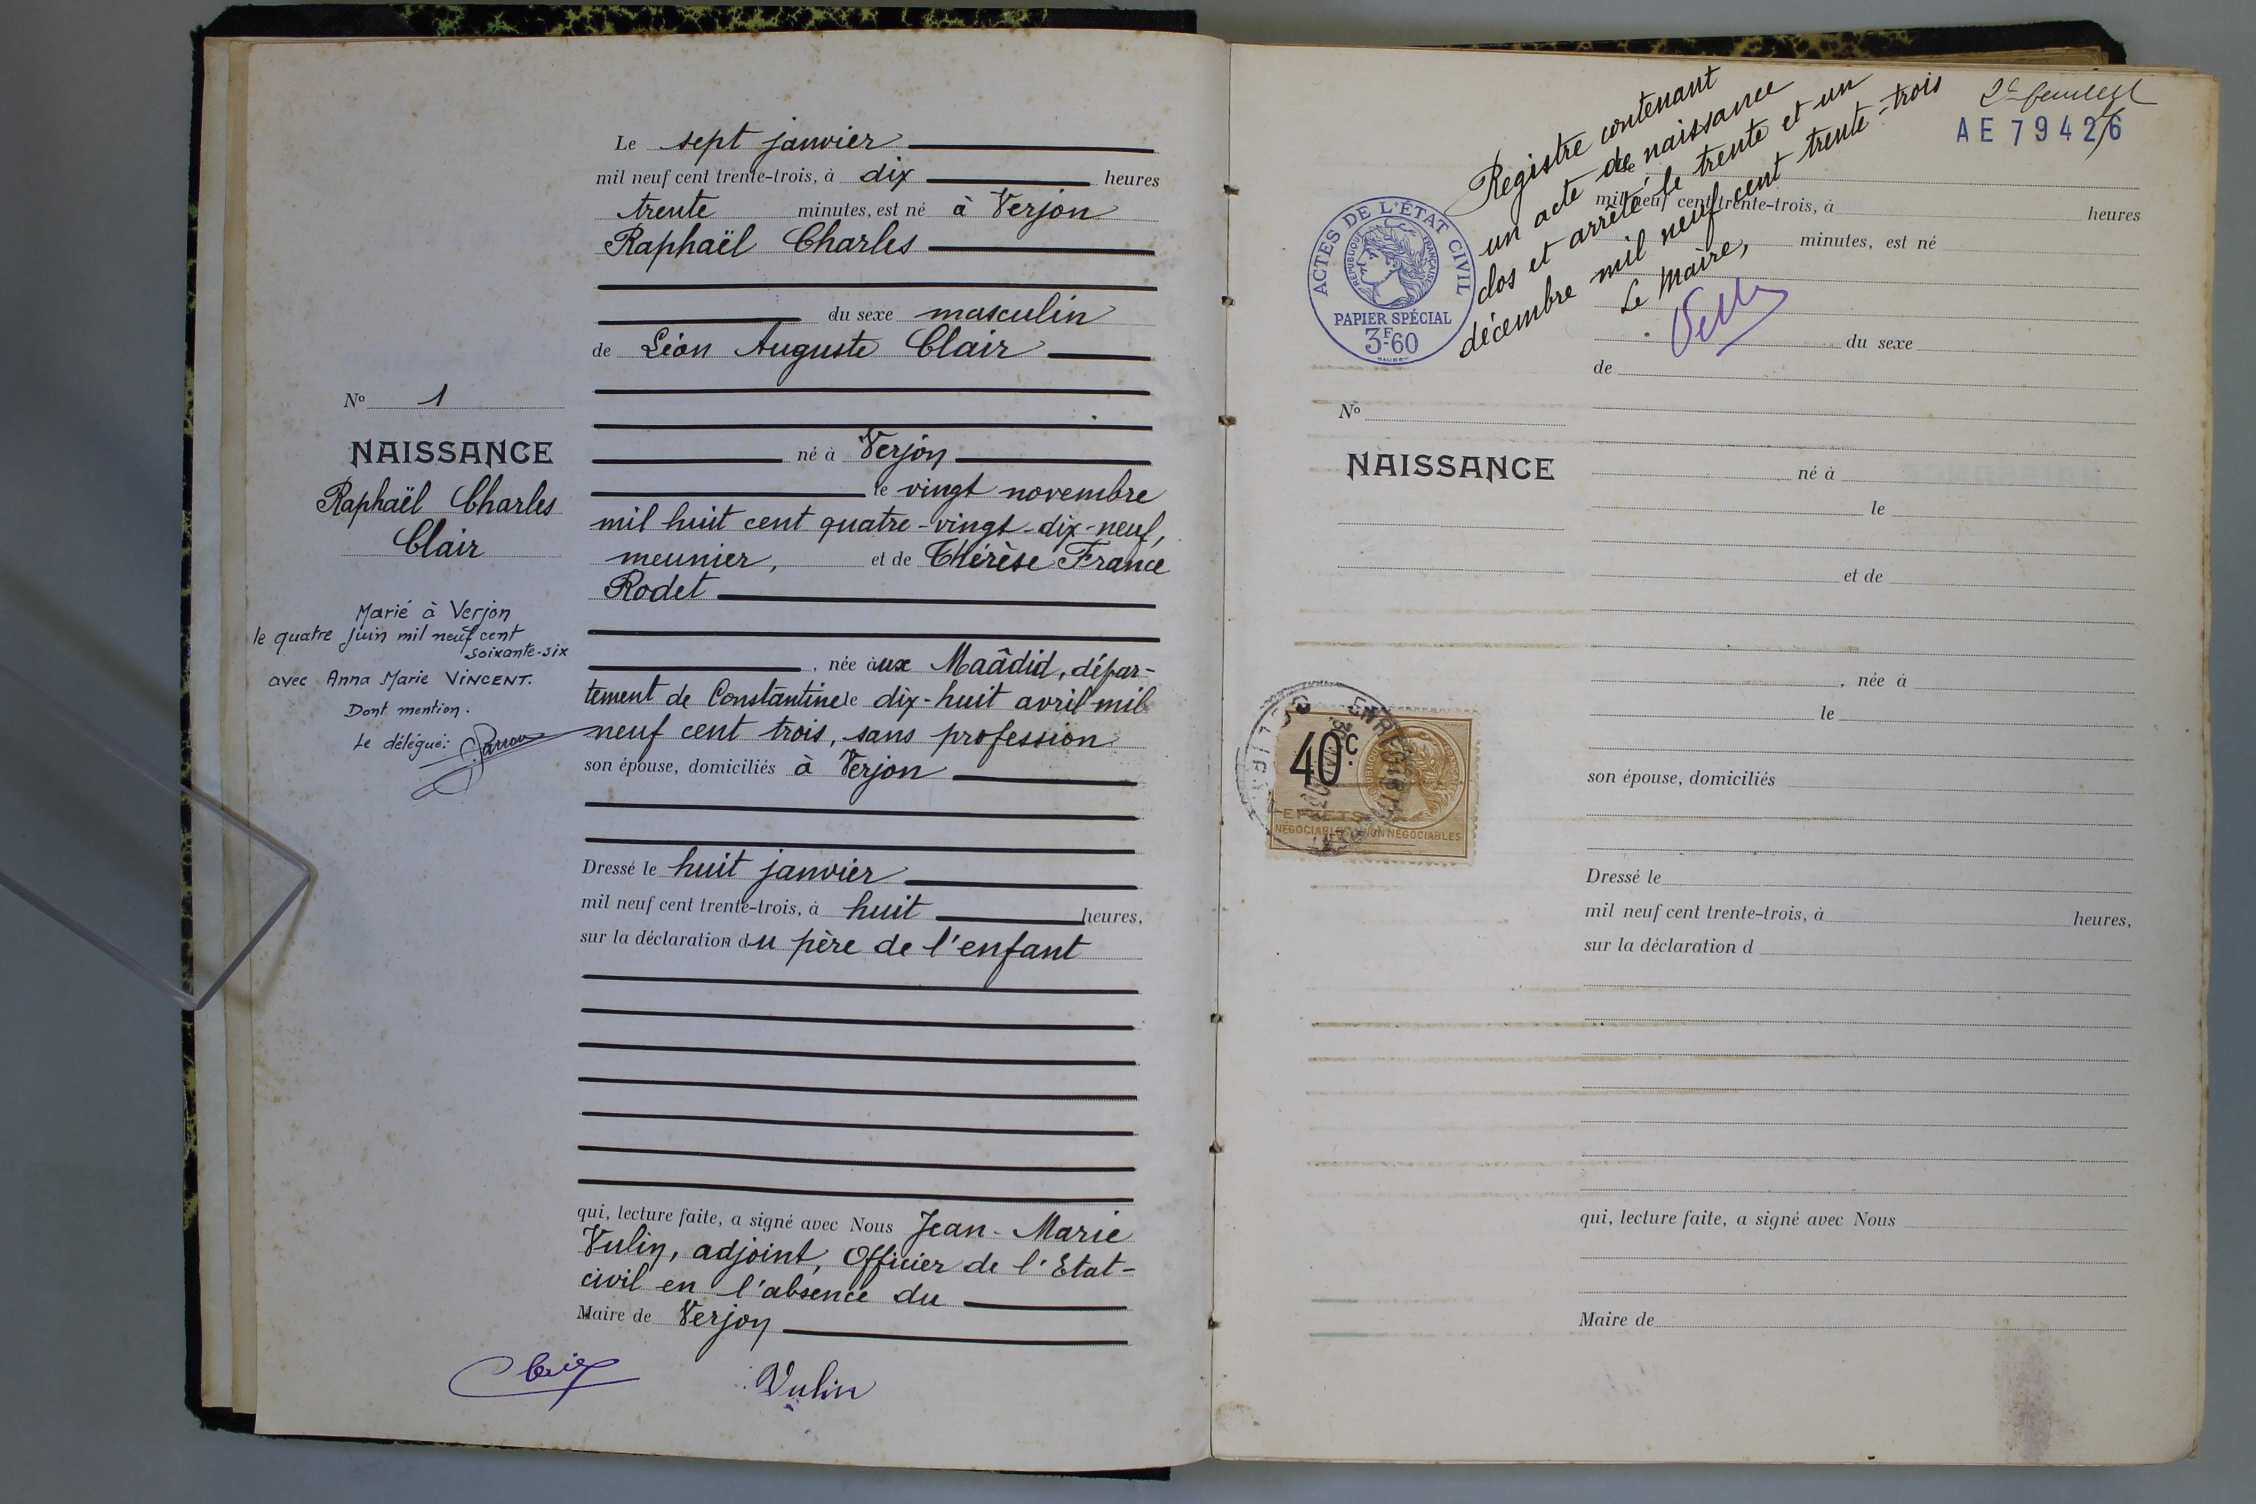 Le sept janvier
mil neuf cent trente-trois, à dix heures
trente minutes, est né à Verjon
Raphaël Charles
du sexe masculin
de Léon Auguste Clair
né à Verjon
le vingt novembre
mil huit cent quatre-vingt-dix-neuf,
meunier, et de Thérèse France
Rodet
, née àux Maâdid, dépar-
tement de Constantine le dix-huit avril mil
neuf cent trois, sans profession
son épouse, domiciliés à Verjon
Dressé le huit janvier
mil neuf cent trente-trois, à huit heures,
sur la déclaration du père de l'enfant
qui, lecture faite, a signé avec Nous Jean-Marie
Vulin, adjoint, Officier de l'Etat-
civil en l'absence du
Maire de Verjon
Vulin
No 1
NAISSANCE
Raphaël Charles
Clair
Marié à Verjon
le quatre juin mil neuf cent
soixante-six
avec Anna Marie VINCENT.
Dont mention.
Le délégué:
Registre contenant
un acte de naissance
clos et arrêté le trente et un
décembre mil neuf cent trente-trois
Le Maire,
AE 79426
ACTES DE L'ÉTAT CIVIL
RÉPUBLIQUE FRANÇAISE
PAPIER SPÉCIAL
3F60
mil neuf cent trente-trois, à heures
minutes, est né
du sexe
de
No
NAISSANCE
né à
le
et de
, née à
le
son épouse, domiciliés
40c.
EFFETS
NÉGOCIABLES NON NÉGOCIABLES
Dressé le
mil neuf cent trente-trois, à heures,
sur la déclaration d
qui, lecture faite, a signé avec Nous
Maire de